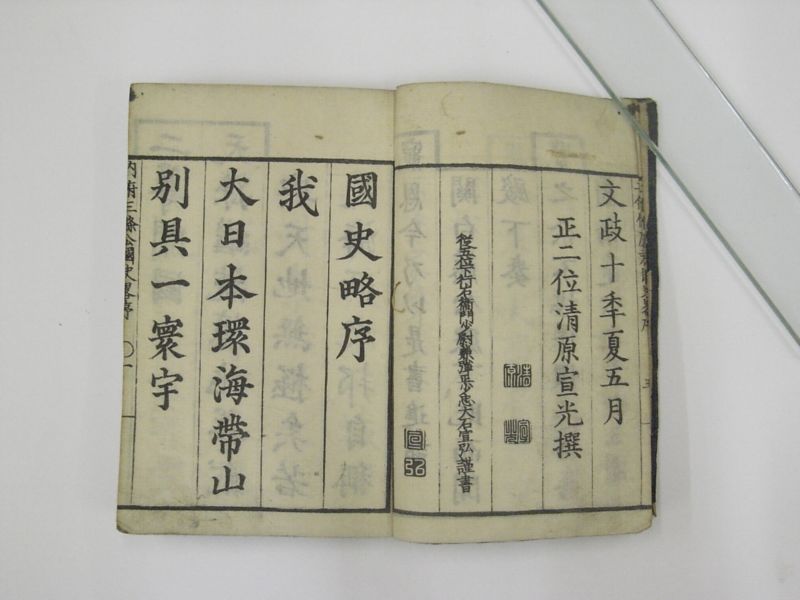 文政十季夏五月
正二位清原宣光撰
從五位下行右衛門少尉兼彈正少忠大石宣弘謹書
宣弘
國史略序
我
大日本環海帶山
別具一寰宇
内府三條公國史畧序
一